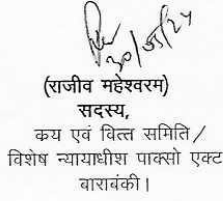 30/05/24
(राजीव महेश्वरम)
सदस्य,
कय एवं वित्त समिति /
विशेष न्यायाधीश पाक्सो एक्ट
बाराबंकी।